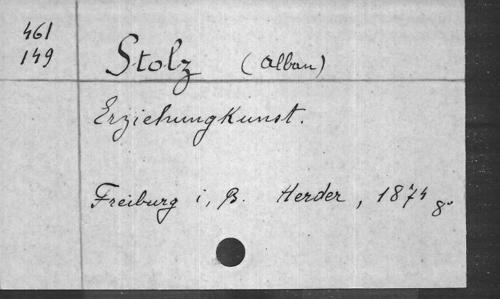 461
149
Stolz (Alban)
Erziehungkunst.
Freiburg i, B. Herder, 1874 8°